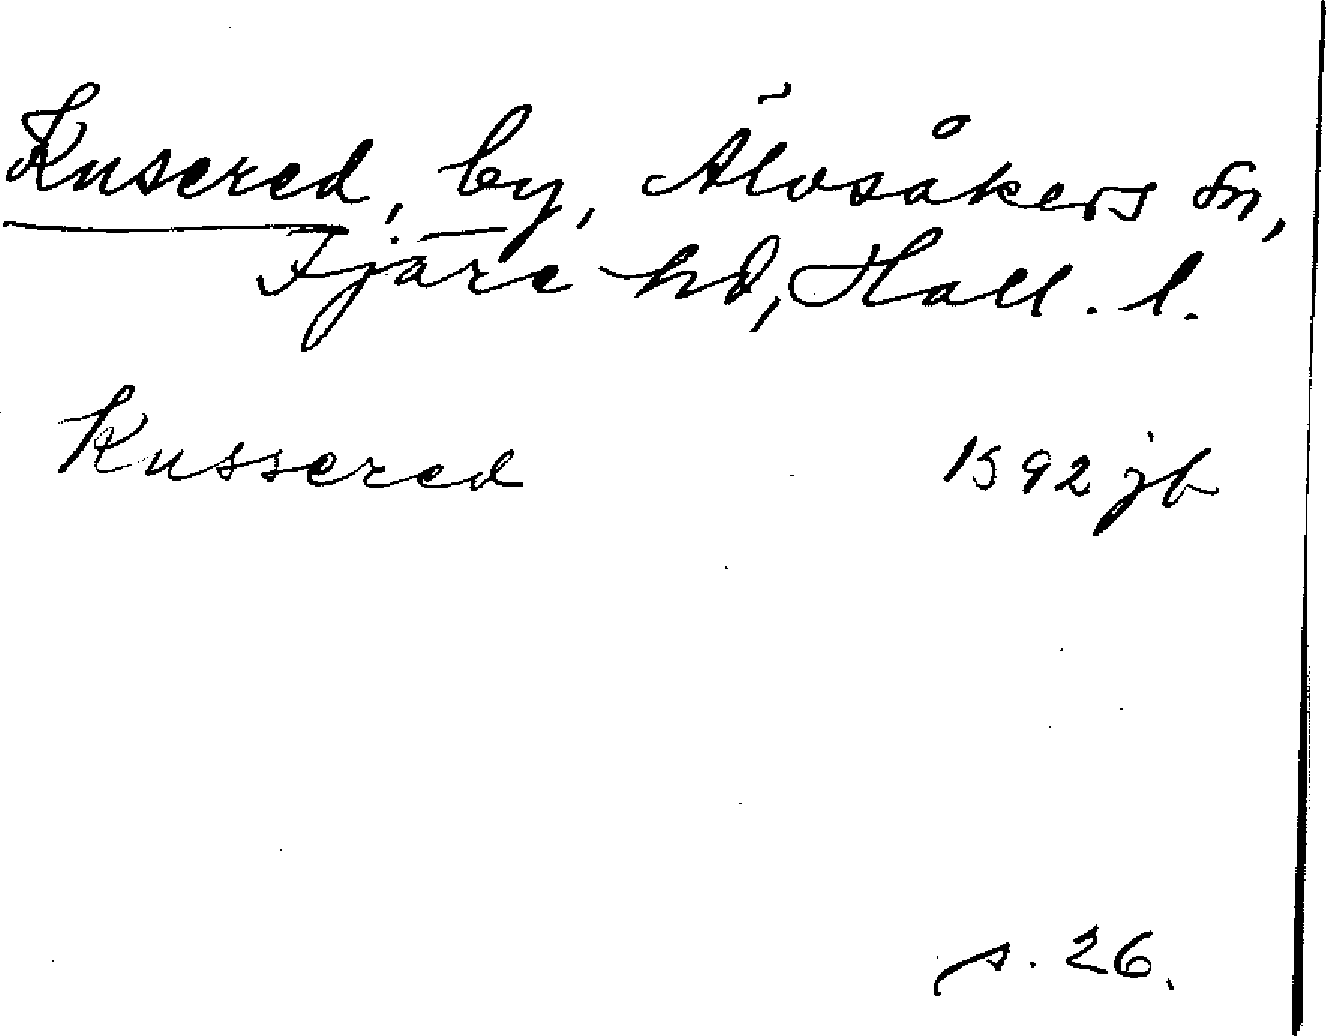 Kusered, by, Älvsåkers sn,
Fjäre hd, Hall. l.
Kussered 1592 jb
s. 26.